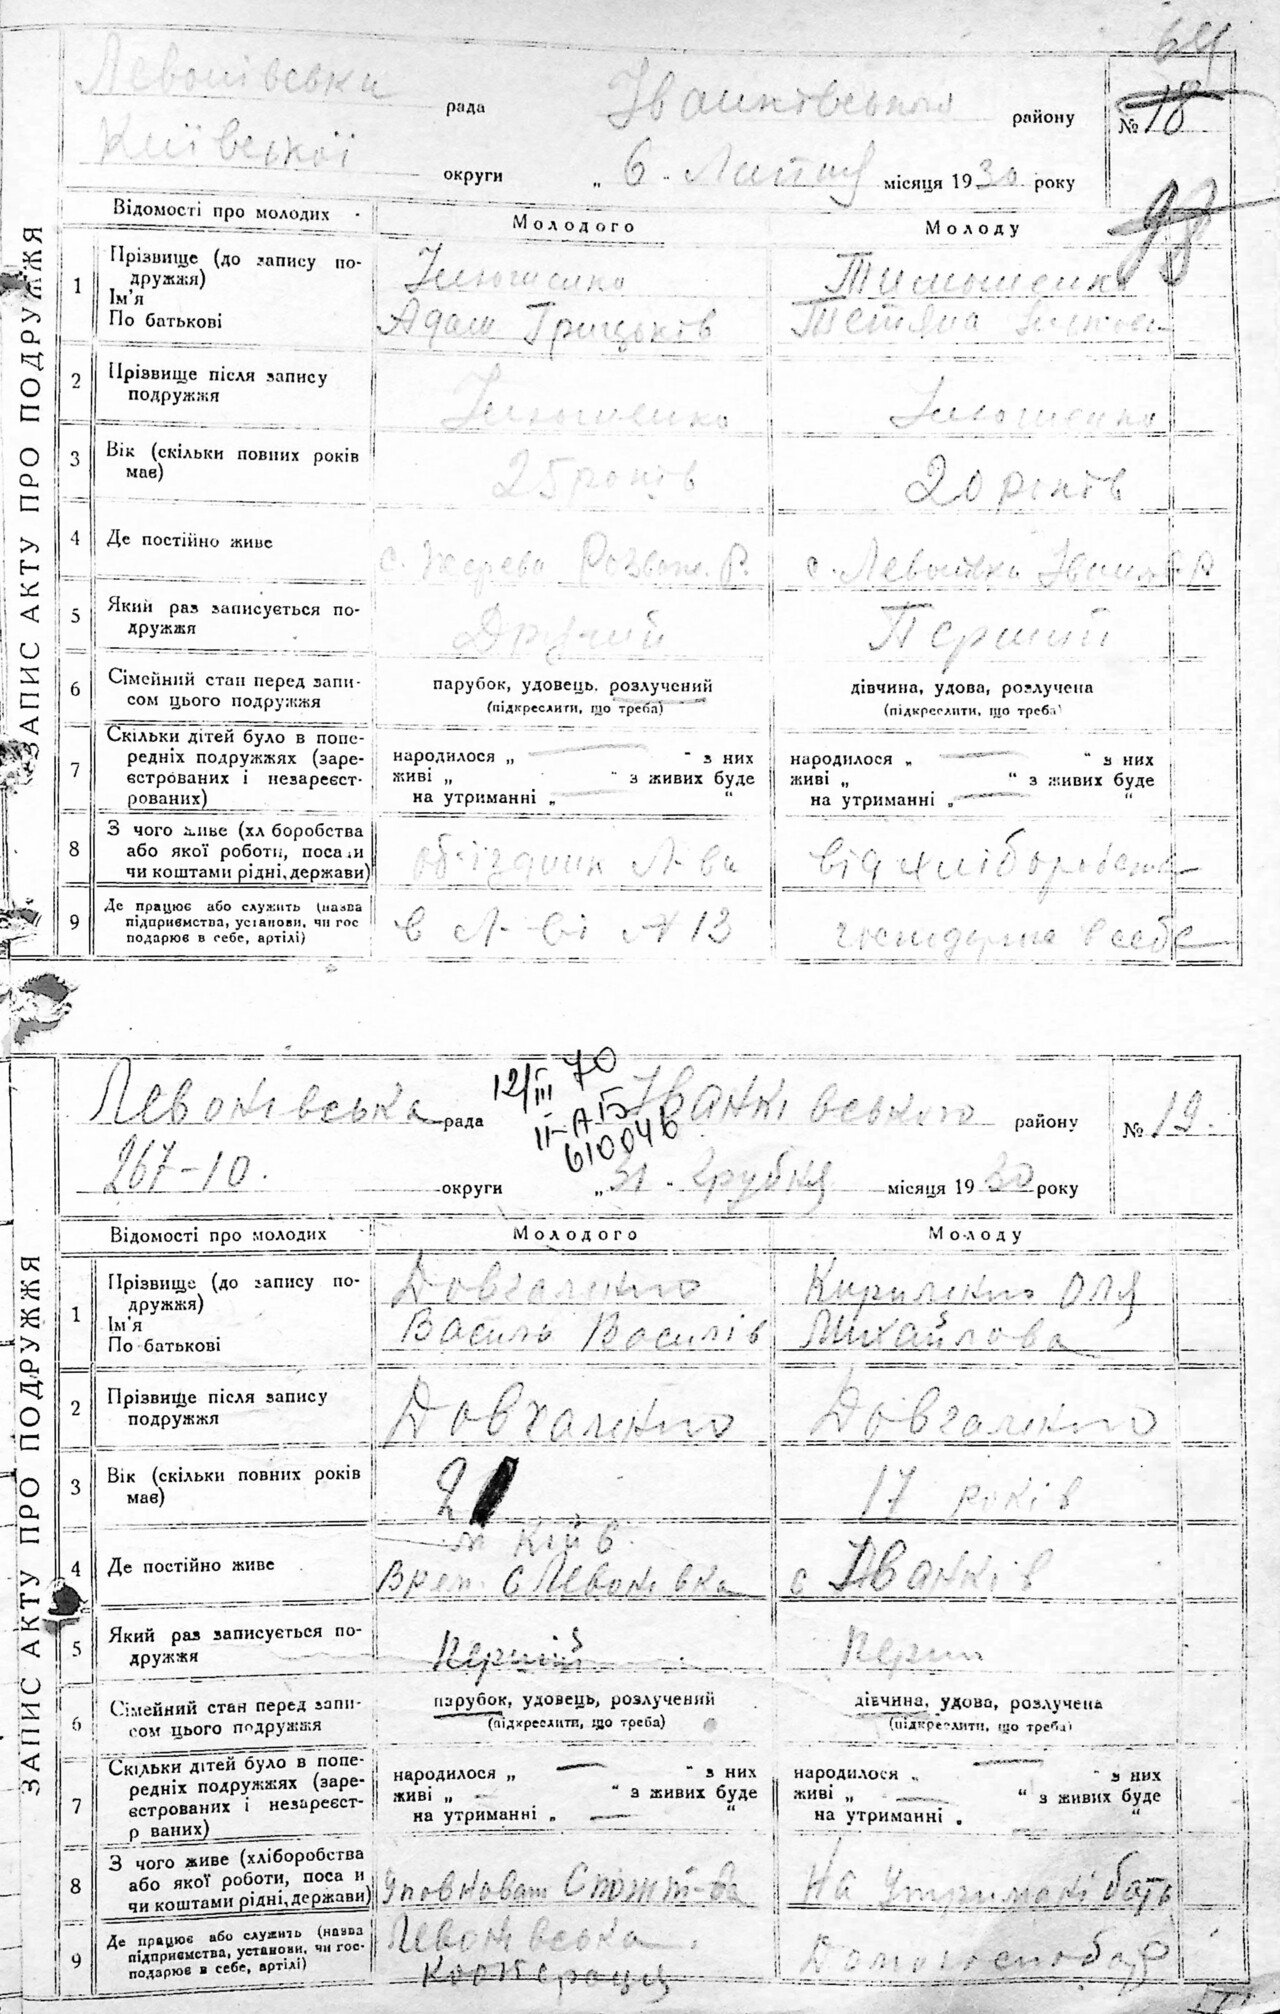 64
Левонівська рада Іванківського району № 18
Київської округи „ 6 " Липня місяця 1930 року
98
ЗАПИС АКТУ ПРО ПОДРУЖЖЯ
Відомості про молодих Молодого Молоду
1 Прізвище (до запису по-
дружжя) Ілюшенко Тимошенко
Ім'я
По батькові Адам Грицьків Тетяна
2 Прізвище після запису
подружжя Ілюшенко Ілюшенко
3 Вік (скільки повних років
має) 25 років 20 років
4 Де постійно живе с. Жерева Розваж. Р. с. Левонівка Іванк. Р.
5 Який раз записується по-
дружжя Другий Перший
6 Сімейний стан перед запи-
сом цього подружжя парубок, удовець, розлучений дівчина, удова, розлучена
(підкреслити, що треба) (підкреслити, що треба)
7 Скільки дітей було в попе-
редніх подружжях (заре-
єстрованих і незареєст-
рованих)
народилося „ — " з них народилося „ — " з них
живі „ " з живих буде живі „ " з живих буде
на утриманні „ — " на утриманні „ — "
8 З чого живе (хліборобства
або якої роботи, посади
чи коштами рідні, держави) об'їздчик Л-ва від хліборобства
9 Де працює або служить (назва
підприємства, установи, чи гос
подарює в себе, артілі) в Л-ві № 13 господарює в себе
12/III 70
II-АБ
610046
Левонівська рада Іванківського району № 19.
267-10. округи „ 31 " Грудня місяця 1930 року
ЗАПИС АКТУ ПРО ПОДРУЖЖЯ
Відомості про молодих Молодого Молоду
1 Прізвище (до запису по-
дружжя) Довгаленко Кириленко Оля
Ім'я
По батькові Василь Василів Михайлова
2 Прізвище після запису
подружжя Довгаленко Довгаленко
3 Вік (скільки повних років
має) 21 17 років
4 Де постійно живе м Київ
Врем. с Левонівка с Іванків
5 Який раз записується по-
дружжя Перший Перш
6 Сімейний стан перед запи-
сом цього подружжя парубок, удовець, розлучений дівчина, удова, розлучена
(підкреслити, що треба) (підкреслити, що треба)
7 Скільки дітей було в попе-
редніх подружжях (заре-
єстрованих і незареєст-
р ваних)
народилося „ — " з них народилося „ — " з них
живі „ — " з живих буде живі „ — " з живих буде
на утриманні „ — " на утриманні „ "
8 З чого живе (хліборобства
або якої роботи, поса и
чи коштами рідні, держави) Уповноваж Спожт-ва На утримані бать
9 Де працює або служить (назва
підприємства, установи, чи гос-
подарює в себе, артілі) Левонівська
Кооперація